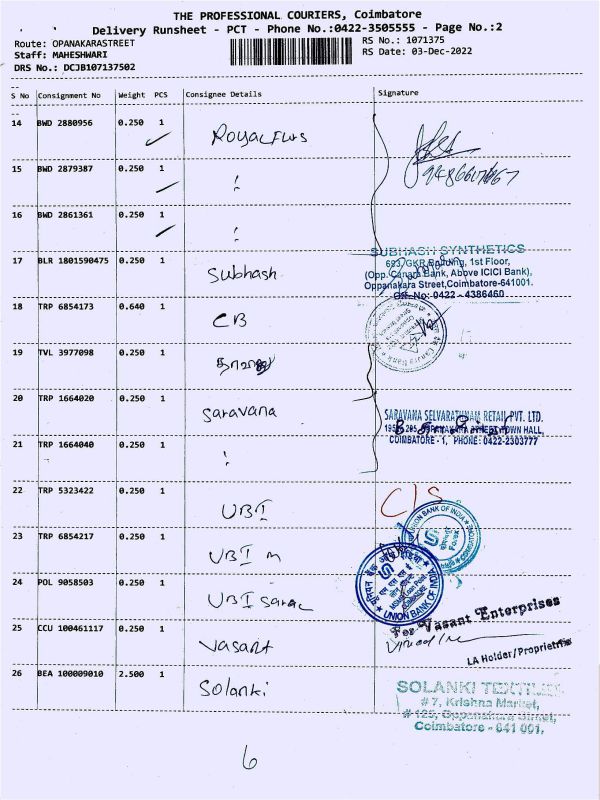 THE PROFESSIONAL COURIERS, Coimbatore
Delivery Runsheet - PCT - Phone No.:0422-3505555 - Page No.:2
Route: OPANAKARASTREET
RS No.: 1071375
Staff: MAHESHWARI
RS Date: 03-Dec-2022
DRS No.: DCJB107137502
S No Consignment No Weight PCS Consignee Details Signature
14 BWD 2880956 0.250 1
15 BWD 2879387 0.250 1
16 BWD 2861361 0.250 1
17 BLR 1801590475 0.250 1 Subhash
SUBHASH SYNTHETICS
693, GKR Building, 1st Floor,
(Opp. Canara Bank, Above ICICI Bank),
Oppanakara Street, Coimbatore-641001.
Off: No: 0422 - 4386460
18 TRP 6854173 0.640 1 CB
19 TVL 3977098 0.250 1
20 TRP 1664020 0.250 1 Saravana
SARAVANA SELVARATHNAM RETAIL PVT. LTD.
TOWN HALL,
COIMBATORE - 1, PHONE: 0422-2303777
21 TRP 1664040 0.250 1
22 TRP 5323422 0.250 1 UBI C/S
UNION BANK OF INDIA
Forex
23 TRP 6854217 0.250 1 UBI m
24 POL 9058503 0.250 1 UBI Sarac
UNION BANK OF INDIA
25 CCU 100461117 0.250 1 Vasant
For Vasant Enterprises
LA Holder/Proprietrix
26 BEA 100009010 2.500 1 Solanki
SOLANKI TEXTILES
# 7, Krishna Market,
# 125, Oppanakara Street,
Coimbatore - 641 001.
6